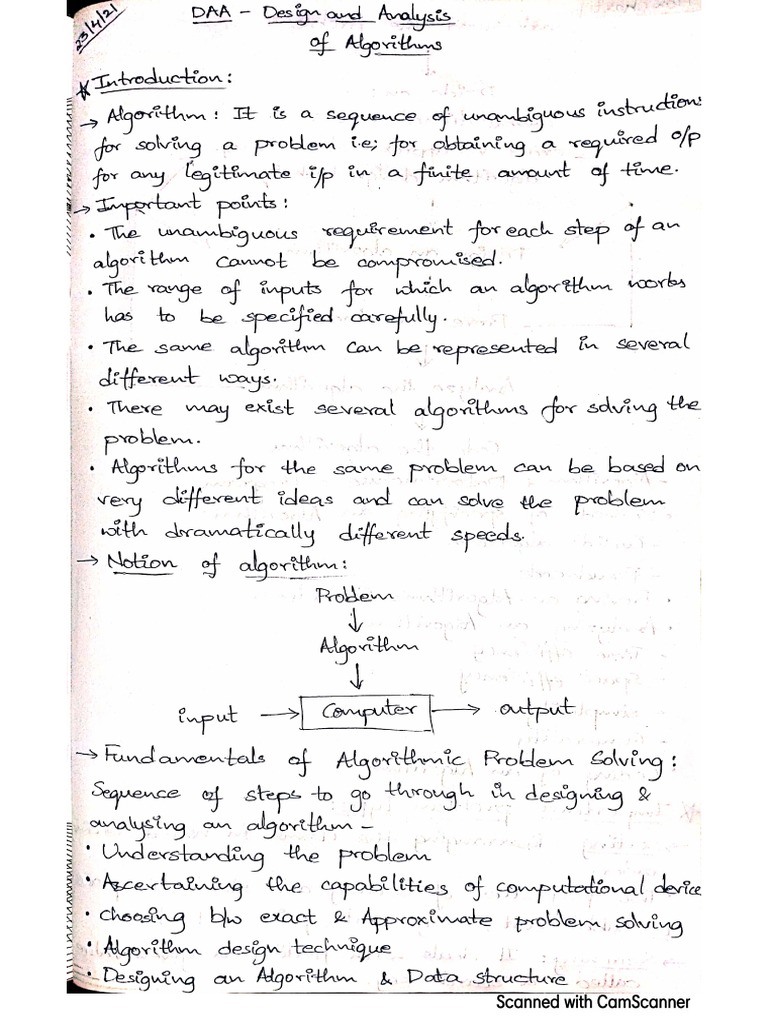 23/4/21
DAA - Design and Analysis
of Algorithms
* Introduction:
→ Algorithm: It is a sequence of unambiguous instructions
for solving a problem i.e; for obtaining a required o/p
for any legitimate i/p in a finite amount of time.
→ Important points:
• The unambiguous requirement for each step of an
algorithm cannot be compromised.
• The range of inputs for which an algorithm works
has to be specified carefully.
• The same algorithm can be represented in several
different ways.
• There may exist several algorithms for solving the
problem.
• Algorithms for the same problem can be based on
very different ideas and can solve the problem
with dramatically different speeds.
→ Notion of algorithm:
Problem
↓
Algorithm
↓
input → Computer → output
→ Fundamentals of Algorithmic Problem Solving:
Sequence of steps to go through in designing &
analysing an algorithm -
• Understanding the problem
• Ascertaining the capabilities of computational device
• choosing b/w exact & Approximate problem solving
• Algorithm design technique
• Designing an Algorithm & Data structure
Scanned with CamScanner